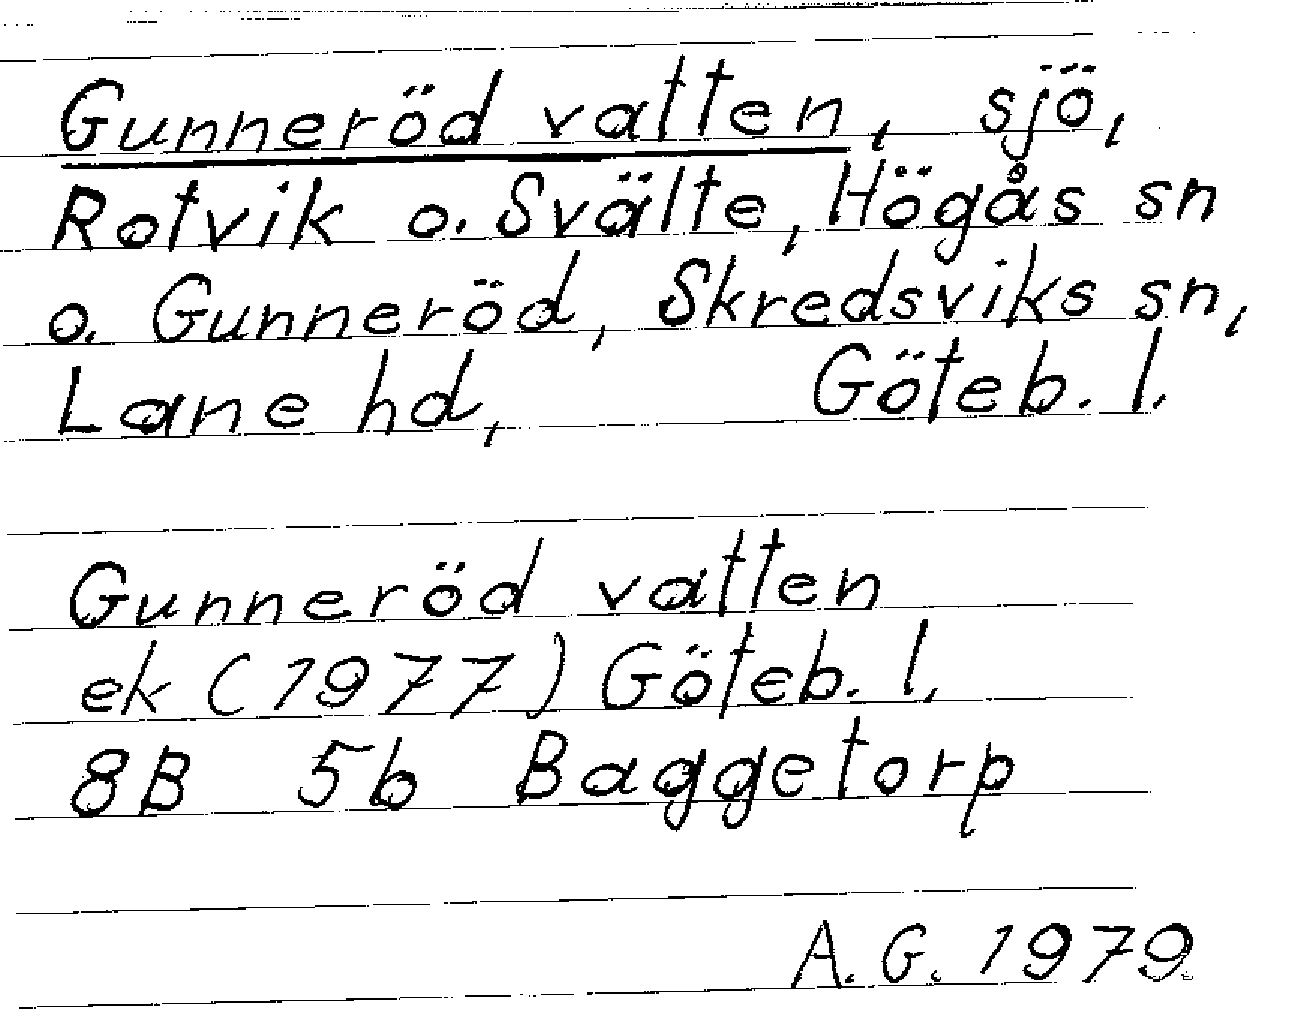 Gunneröd vatten, sjö,
Rotvik o. Svälte, Högås sn
o. Gunneröd, Skredsviks sn,
Lane hd, Göteb. l.
Gunneröd vatten
ek (1977) Göteb. l.
8B 5b Baggetorp
A. G. 1979